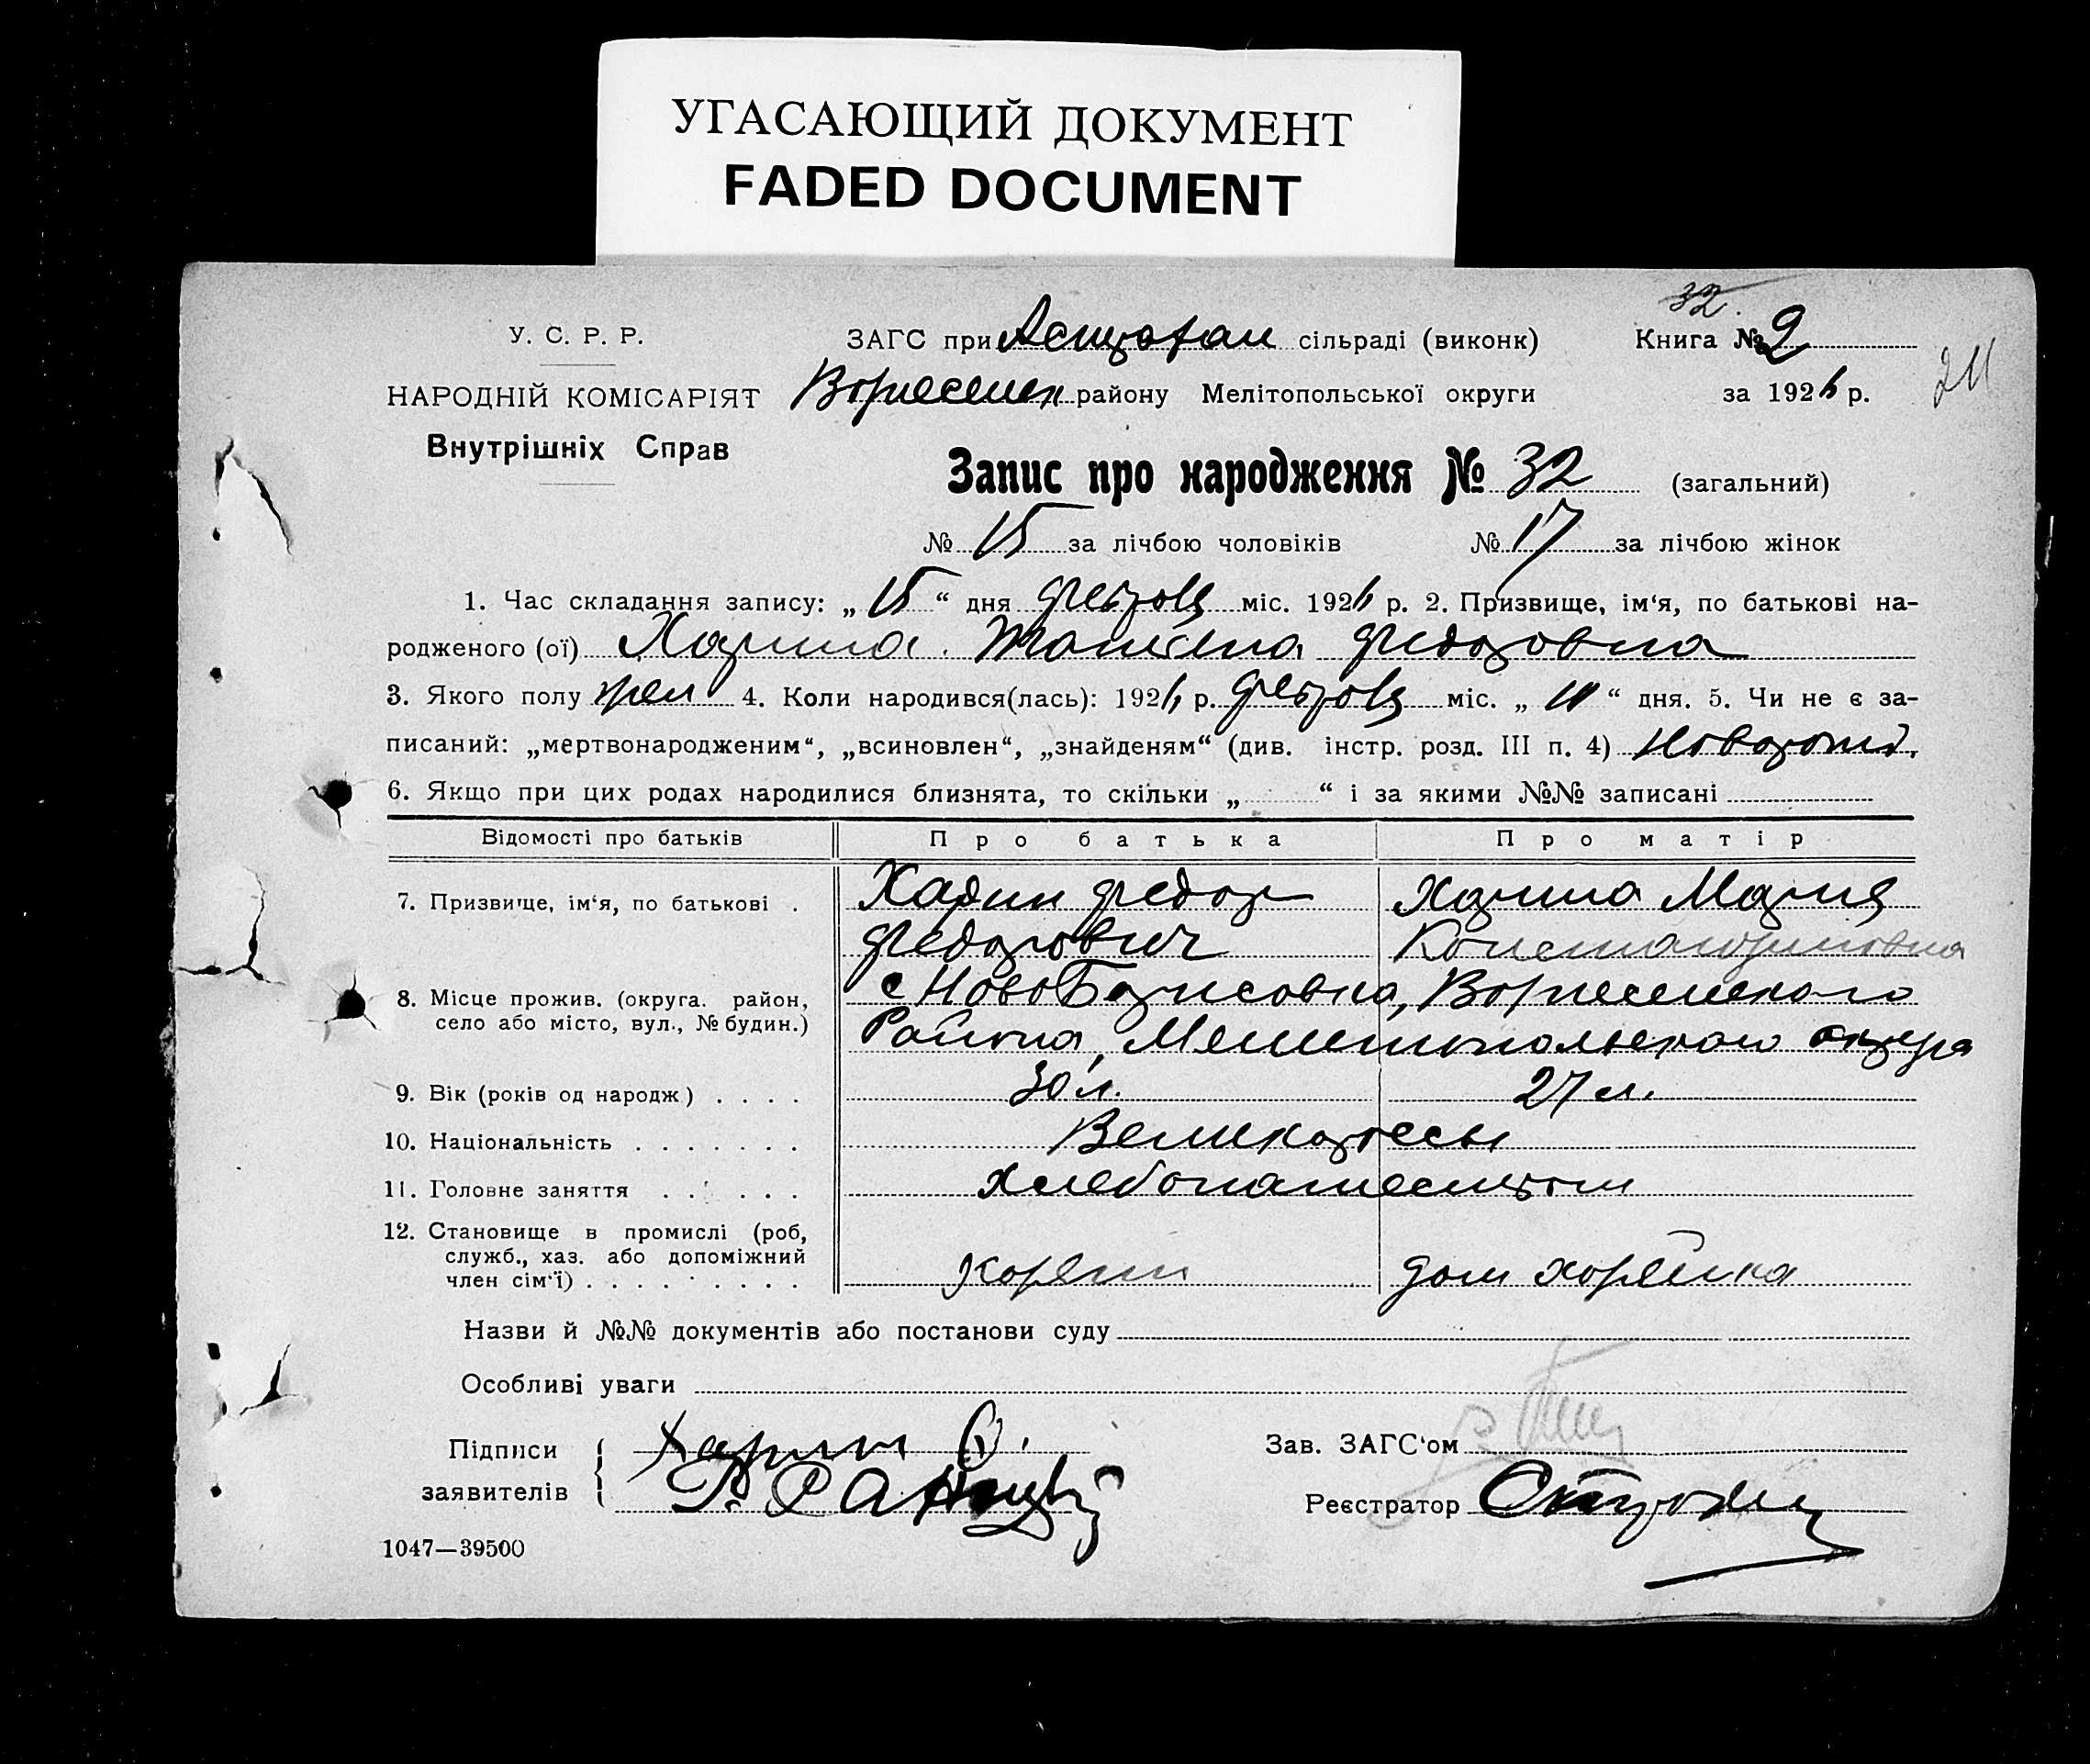 УГАСАЮЩИЙ ДОКУМЕНТ
FADED DOCUMENT
32.
У. С. Р. Р.
ЗАГС при сільраді (виконк)
Книга № 2
НАРОДНІЙ КОМІСАРІЯТ
Вознесенск району Мелітопольської округи
за 1926 р.
Внутрішніх Справ
Запис про народження № 32 (загальний)
№ 15 за лічбою чоловіків № 17 за лічбою жінок
1. Час складання запису: „ 15 “ дня февраля міс. 1926 р. 2. Призвище, ім‘я, по батькові на-
родженого (ої) Харина Федоровна
3. Якого полу жен 4. Коли народився(лась): 1926 р. февраля міс. „ “ дня. 5. Чи не є за-
писаний: „мертвонародженим“, „всиновлен“, „знайденям“ (див. інстр. розд. III п. 4) Новорожд.
6. Якщо при цих родах народилися близнята, то скільки „ “ і за якими №№ записані
Відомості про батьків
Про батька
Про матір
7. Призвище, ім‘я, по батькові .
Харин Федор
Федорович
Харина Мария
Константиновна
8. Місце прожив. (округа. район,
село або місто, вул., № будин.)
с НовоБорисовка, Вознесенского
Района, Мелитопольского округа
9. Вік (років од народж) . . . .
30 л.
27 л.
10. Національність . . . . . . .
Великороссы
11. Головне заняття . . . . . .
хлебопашеством
12. Становище в промислі (роб,
служб., хаз. або допоміжний
член сім‘ї) . . . . . . . . .
хозяин
дом хозяйка
Назви й №№ документів або постанови суду
Особливі уваги
Підписи
заявителів
Харин Ф.
Зав. ЗАГС‘ом
Реєстратор
1047—39500